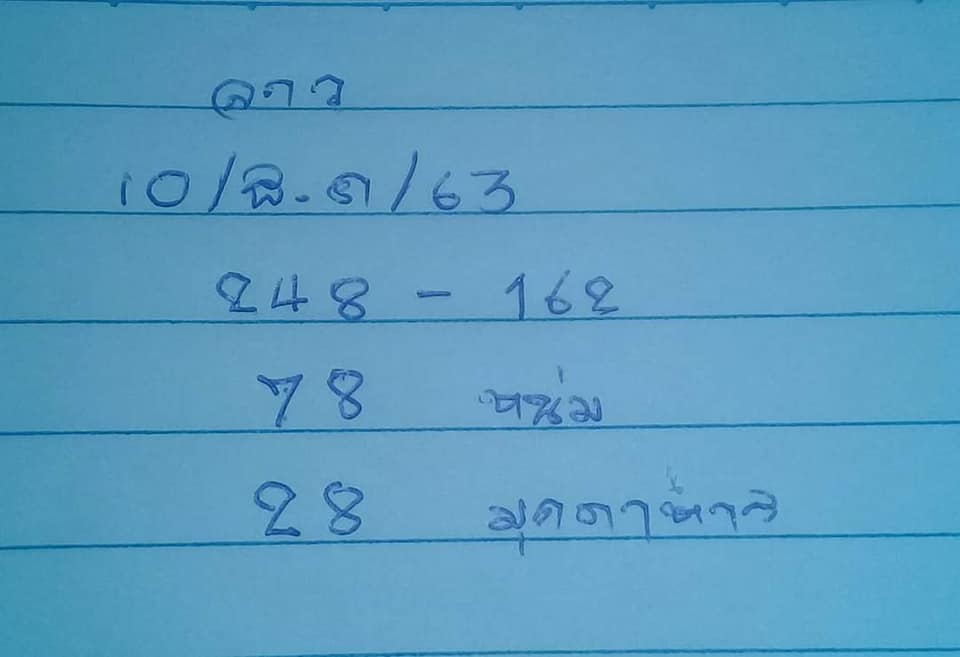 ลาว
10/ส.ค/63
248 - 162
78 หน่ม
28 มุกดาหาร